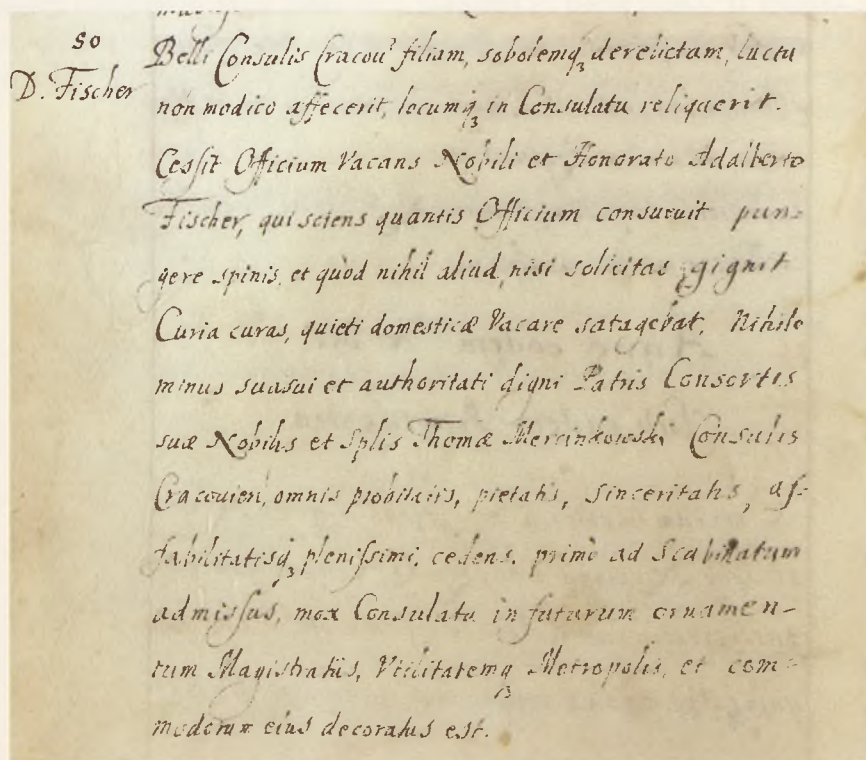 50
D. Fischer
Belli Consulis Cracov: filiam, sobolemq3 derelictam, luctu
non modico affecerit, locumq3 in Consulatu reliquerit.
Cessit Officium Vacans Nobili et Honorato Adalberto
Fischer, qui sciens quantis Officium consueuit pun-
gere spinis, et quòd nihil aliud, nisi solicitas gignit
Curia curas, quieti domesticæ Vacare satagebat, Nihilo
minus suasui et authoritati digni Patris Consortis
suæ Nobilis et Splis Thomæ Mercinkowski Consulis
Cracouien, omnis probitatis, pietatis, sinceritatis, af-
fabilitatisq3 plenissimi, cedens, primò ad Scabinatum
admissus, mox Consulatu in futurum ornamen-
tum Magistratûs, Vtilitatemq3 Metropolis, et com-
modorum eius decoratus est.